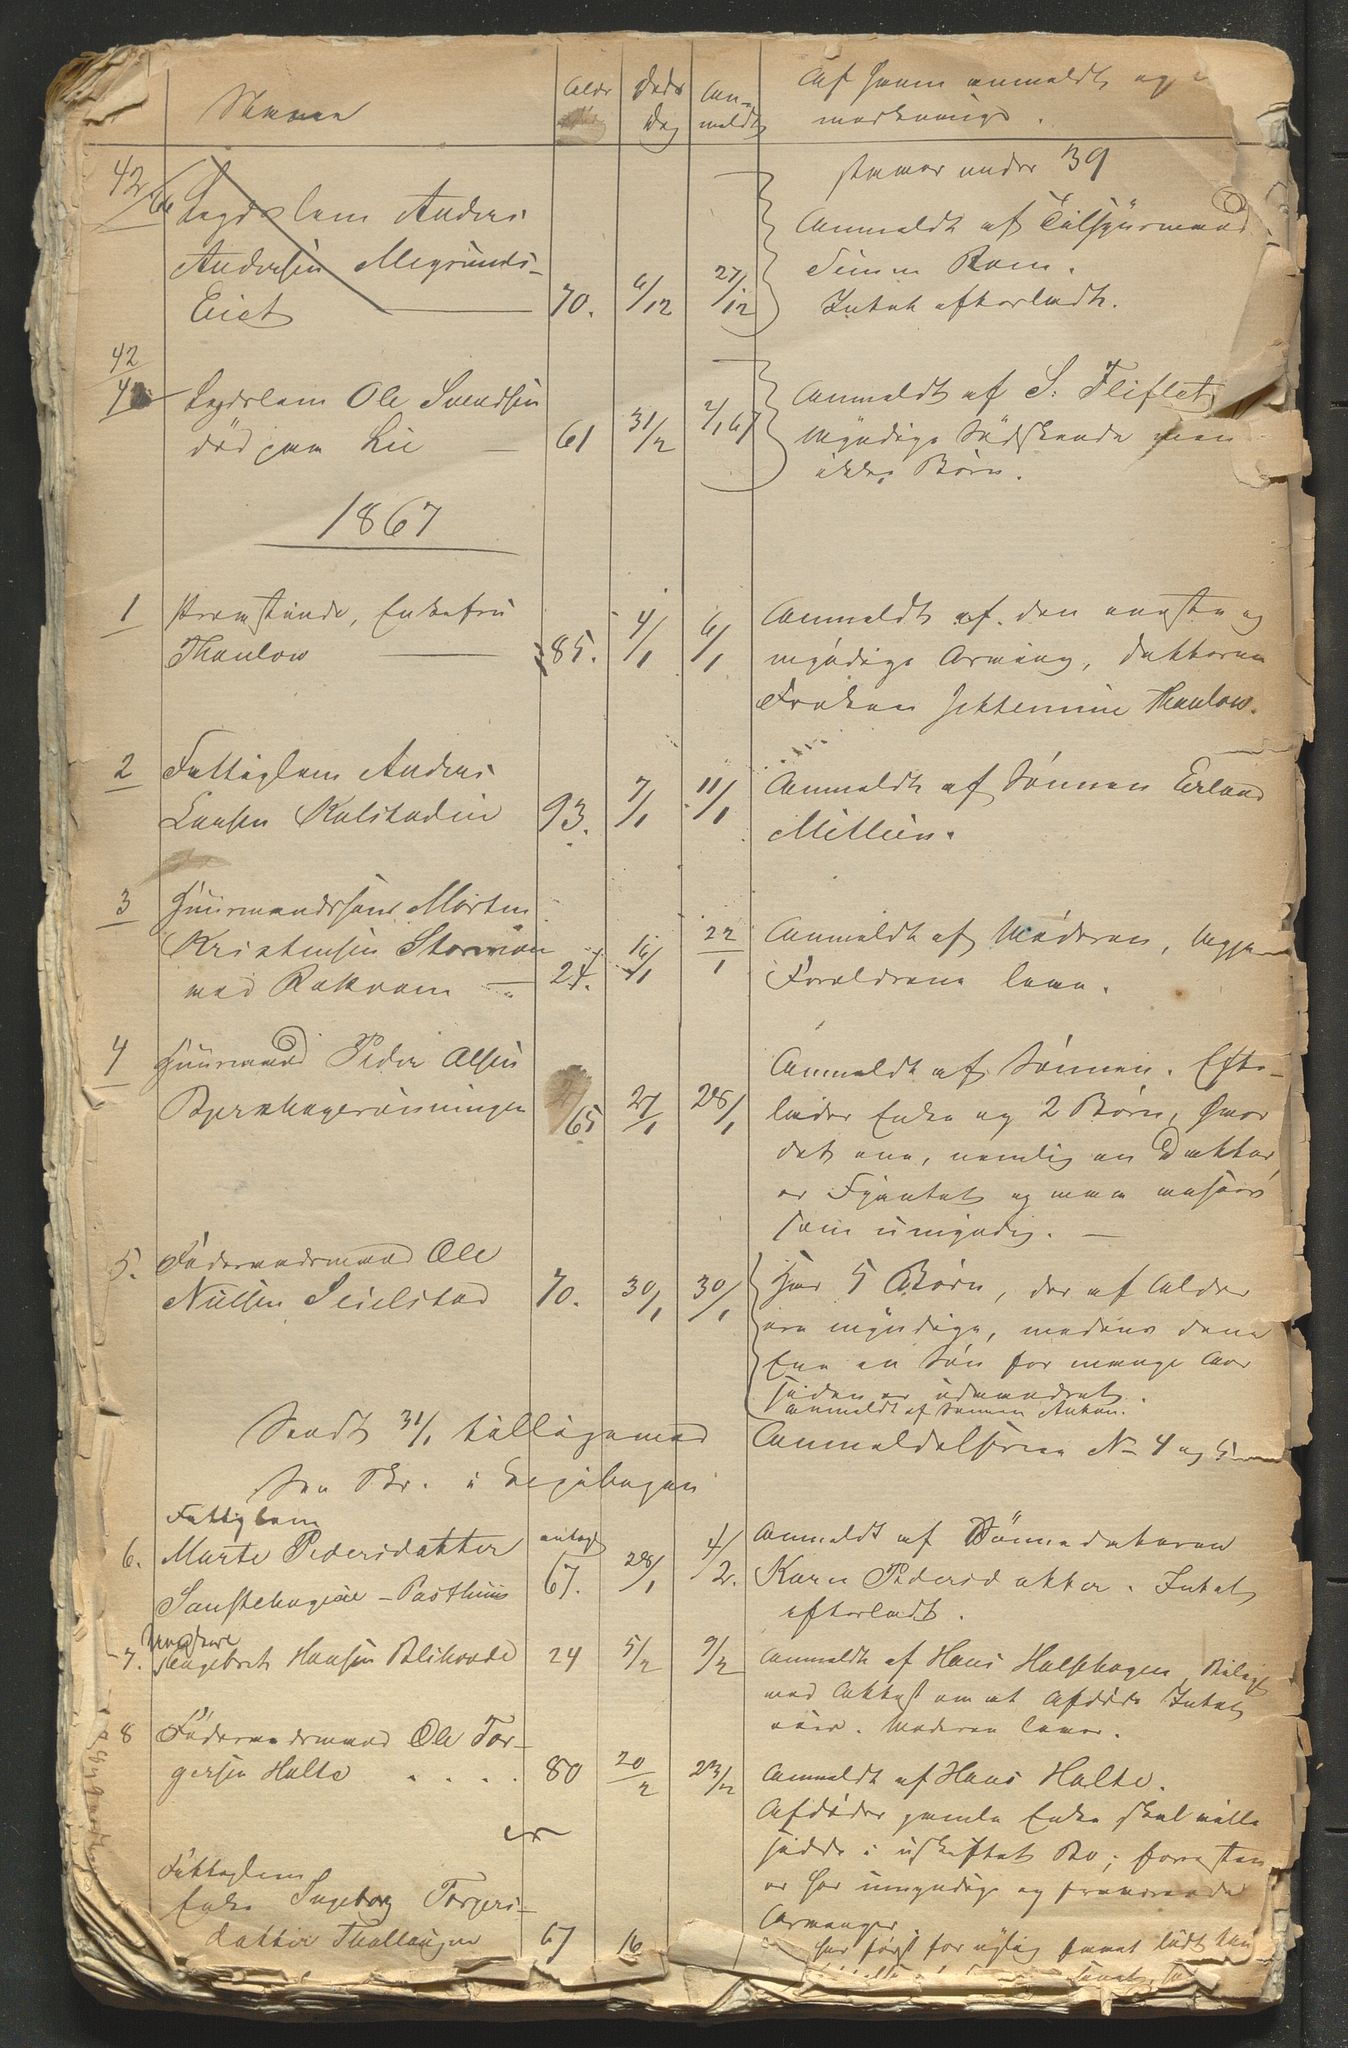 Navne
Alder
Døds
Dag
An-
meldt
Af hvem anmeldt og
mærkninger.
42
Lægdslem Anders
Andersen Megrunds-
Eiet
70.
6/12
27/12
staaer under 39
Anmeldt af Tilsynsmand
Simen Roen.
Intet efterladt.
42
Lægdslem Ole Svendsen
død paa Lie
61
31/12
2/1 67
Anmeldt af S. Fliflet
Myndige Sødskende men
ikke Børn.
1867
1
Præstinde, Enkefru
Thaulow
85.
4/1
6/1
Anmeldt af den eneste og
myndige Arving, Datteren
Frøken Thaulow.
2
Fattiglem Anders
Larsen Kalstadeie
93.
7/1
11/1
Anmeldt af Sønnen Erland
Mitlien.
3
Huusmandssøn Morten
Kristensen Stormoen
ned Rakvam
24.
16/1
22/1
Anmeldt af Moderen, begge
Forældrene leve.
4
Huusmand Peder Olsen
Bjørnhagerønningen
65
27/1
28/1
Anmeldt af Sønnen. Efter-
lader Enke og 2 Børn, hvor
det ene, nemlig en Datter,
er Fjantet og maa ansees
som umyndig.
5.
Føderaadsmand Ole
Nilsen Seielstad
70.
30/1
30/1
Har 5 Børn, der af Alder
ere myndige, medens dene
Ene en Søn for mange Aar
siden er udvandret.
anmeldt af Sønnen Anton.
Sendt 31/1 tilligemed
Anmeldelserne No 4 og 5
Skr. i
6.
Fattiglem
Marte Pedersdatter
Sanstehageeie - Posthuus
antag
67.
28/1
4/2.
Anmeldt af Sønnedatteren
Kari Pedersdatter. Intet
efterladt.
7.
Ungkarl
Engebret Hansen Blihovde
24
5/2
9/2
Anmeldt af Hans Halsehagen Bilagt
med Attest om at Afdøde Intet
eier. Moderen lever.
8
Føderaadsmand Ole Tor-
gersen Holte
80
20/2
23/2
Anmeldt af Hans Holte.
Afdødes gamle Enke skal ville
sidde i uskiftet Bo; forresten
er her umyndige og fraværende
Arvinger.
Fattiglem
Enke Ingeborg Torgers-
datter Thollaugen
67
16
har først for nylig faaet